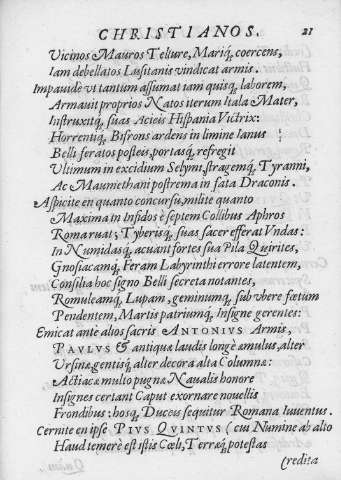 CHRISTIANOS. 21
Vicinos Mauros Tellure, Mariq́, coercens,
Iam debellatos Lusitanis vindicat armis.
Impauidè vt tantum assumat tam quisq́, laborem,
Armauit proprios Natos iterum Itala Mater,
Instruxitq́, suas Acieis Hispania Victrix:
Horrentiq́, Bifrons ardens in limine Ianus
Belli feratos posteis, portasq́, refregit
Vltimum in excidium Selymi, stragemq́, Tyranni,
Ac Maumethani postrema in fata Draconis.
Aspicite en quanto concursu, milite quanto
Maxima in Infidos è septem Collibus Aphros
Roma ruat; Tyberisq́, suas sacer efferat Vndas:
In Numidasq́, acuant fortes sua Pila Quirites,
Gnosiacamq́, Feram Labyrinthi errore latentem,
Consilia hoc signo Belli secreta notantes,
Romuleamq́, Lupam, geminumq́, sub vbere fœtum
Pendentem, Martis patriumq́, Insigne gerentes:
Emicat ante alios sacris ANTONIVS Armis,
PAVLVS & antiquæ laudis longè æmulus, alter
Vrsinæ gentisq́, alter decora alta Columnæ:
Actiacæ multo pugnæ Naualis honore
Insignes certant Caput exornare nouellis
Frondibus: hosq́, Duces sequitur Romana Iuuentus.
Cernite en ipse PIVS QVINTVS (cui Numine ab alto
Haud temerè est istis Cœli, Terræq́, potestas
(redita